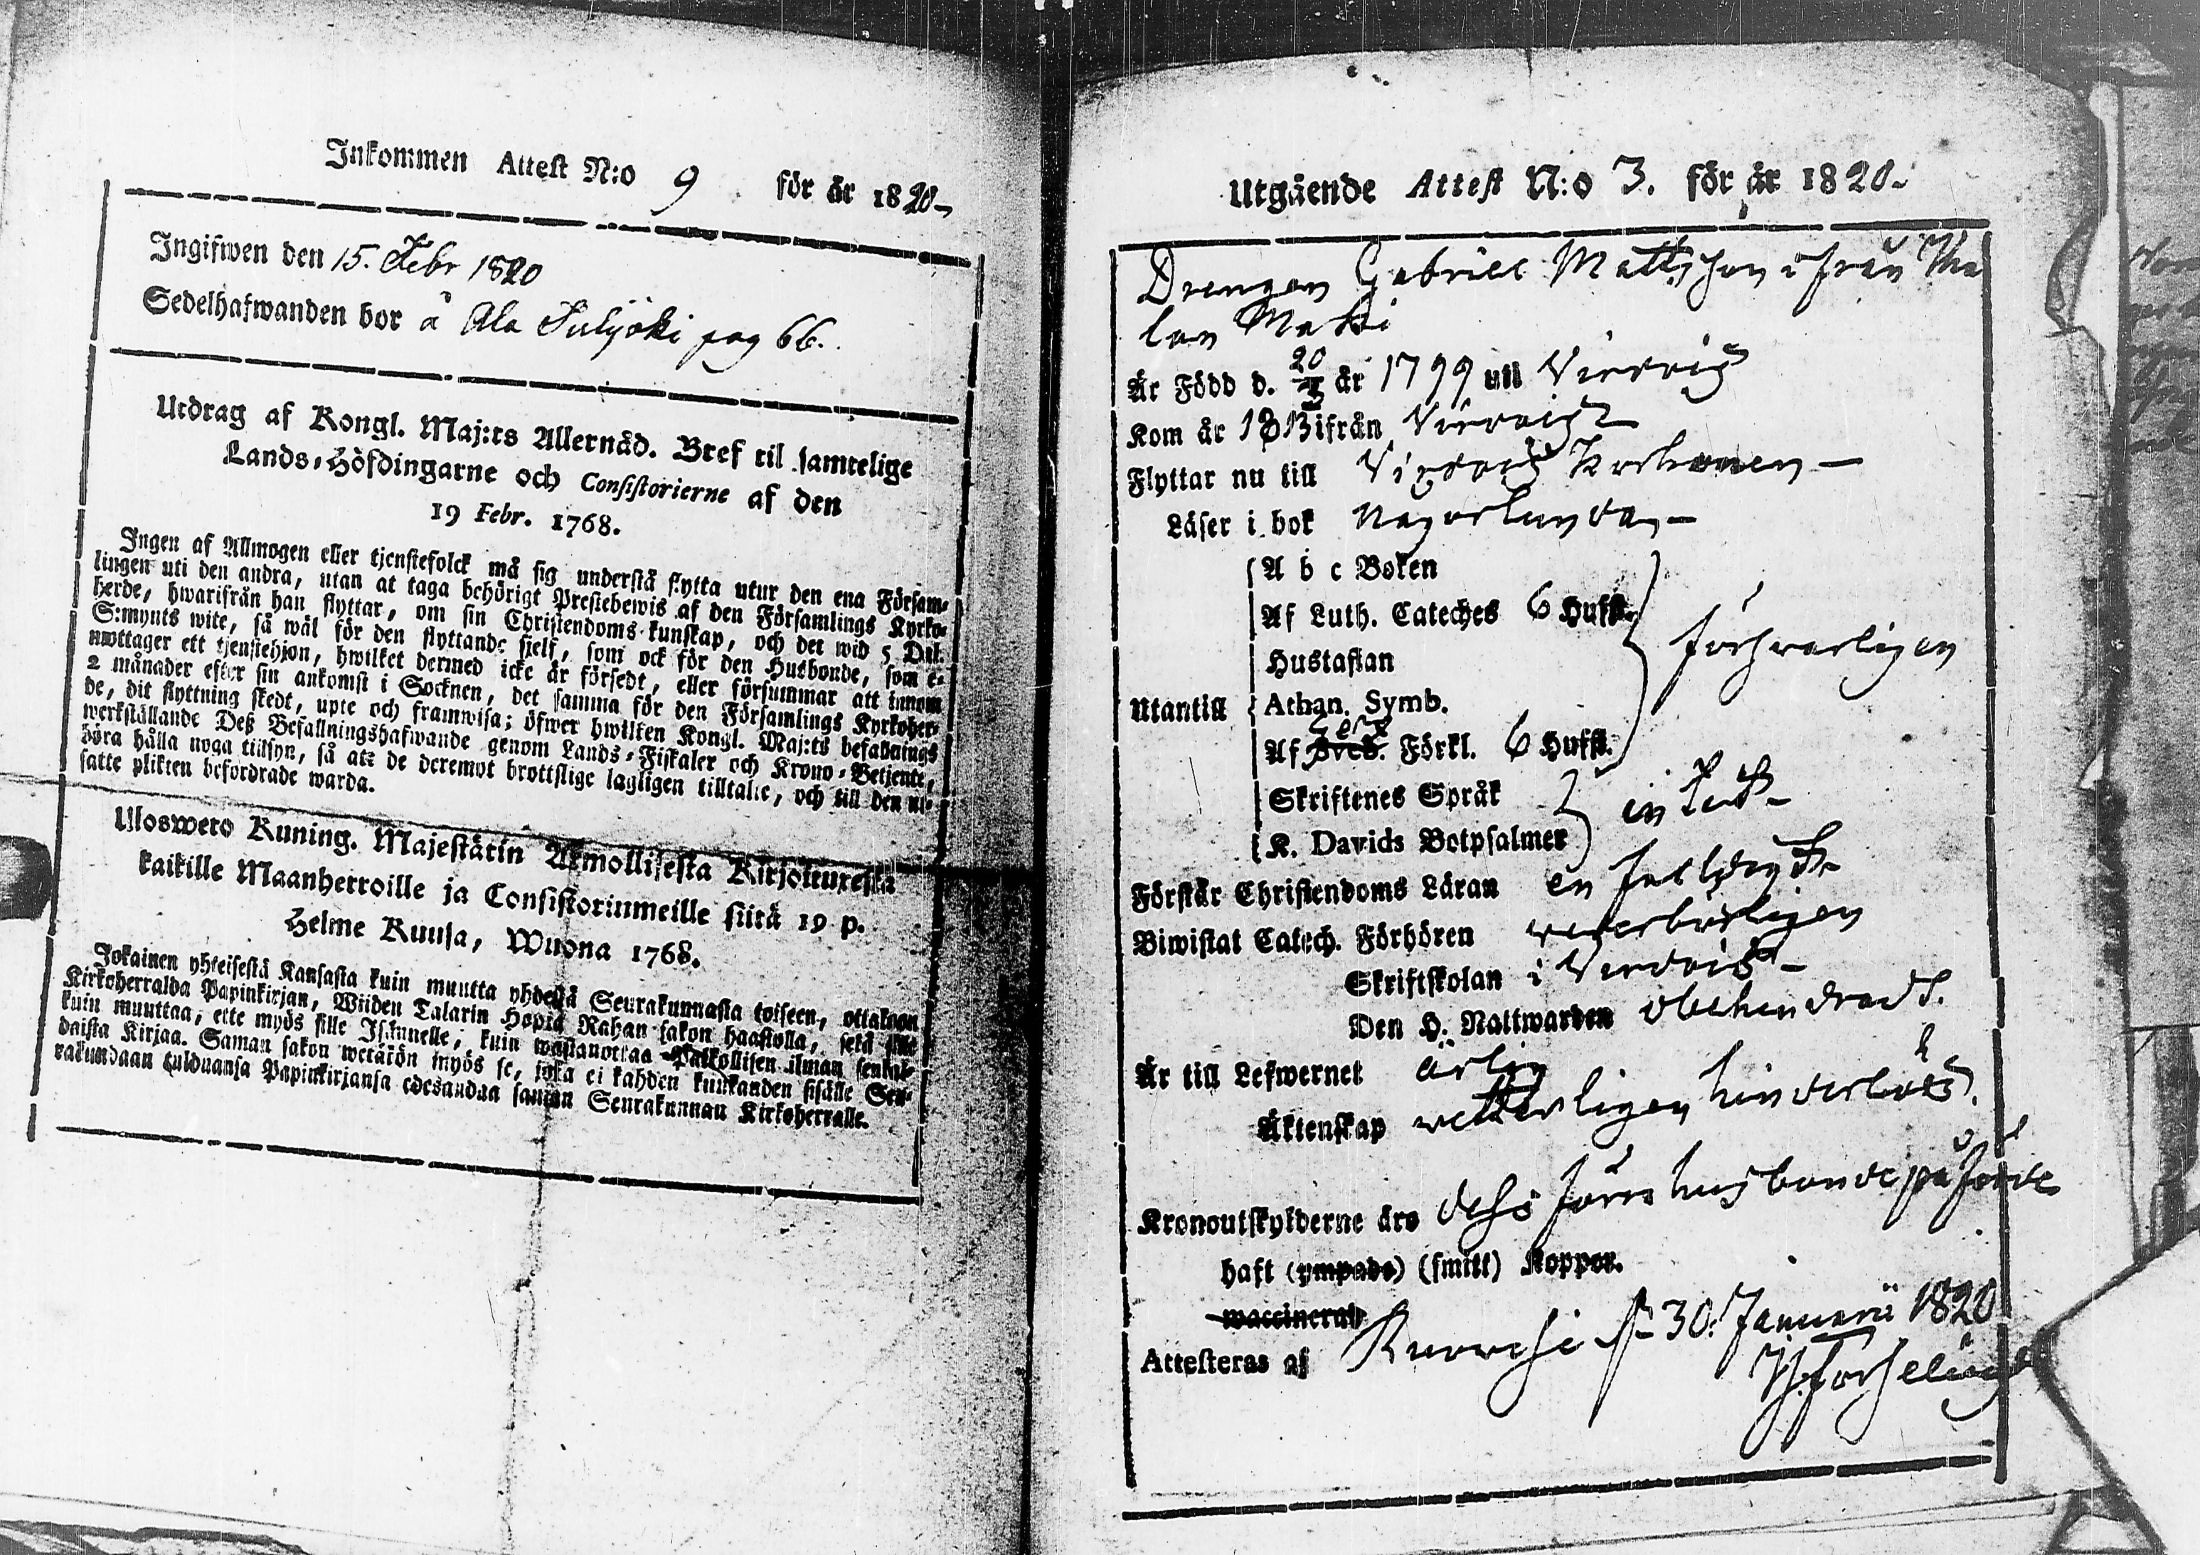 Inkommen Attest N:o 9 för år 1820
Ingifwen den 15. Febr 1820
Sedelhafwanden bor å Ala Suljoki pag 66.
Utdrag af Kongl. Maj:ts Allernåd. Bref til samtelige
Lands-Höfdingarne och Consistorierne af den
19 Febr. 1768.
Ingen af Allmogen eller tjenstefolck må sig understå flytta utur den ena Försam-
lingen uti den andra, utan at taga behörigt Prestebewis af den Församlings Kyrko-
herde, hwarifrån han flyttar, om sin Christendoms kunskap, och det wid 5 Dal.
S:mynts wite, så wäl för den flyttande sielf, som ock för den Husbonde, som e-
mottager ett tjenstehjon, hwilket dermed icke är försedt, eller försummar att innom
2 månader efter sin ankomst i Socknen, det samma för den Församlings Kyrkoher-
de, dit flyttning skedt, upte och framwisa; öfwer hwilken Kongl. Maj:ts befallnings
werkställande Deß Befallningshafwande genom Lands-Fiskaler och Krono-Betjente,
böra hålla noga tillsyn, så att de deremot brottslige lagligen tilltalte, och till den ut-
satte plikten befordrade warda.
Uloswero Kuning. Majestätin Armollisesta Kirjoituresta
kaikille Maanherroille ja Consistoriumeille siitä 19 p.
Helme Kuusa, Wuona 1768.
Jokainen yhteisestä Kansasta kuin muutta yhdestä Seurakunnasta toiseen, ottakoon
Kirkoherralda Papinkirjan, Wiiden Talarin Hopia Rahan sakon haastolla, sekä sille
kuin muuttaa, ette myös sille Isännelle, kuin wastanottaa Palkollisen ilman senkal-
daista Kirjaa. Saman sakon wetäkön myös se, joka ei kahden kuukauden sisälle Seu-
rakundaan tulduansa Papinkirjansa edesanduu saman Seurakunnan Kirkoherralle.
Utgående Attest N:o 3. för år 1820.
Drengen Gabriel Mattsson ifrån
Maki
Är Född d. 20/3 år 1799 uti Virrois
Kom år 1813 ifrån Virrois
Flyttar nu till Virdois
Läser i bok någorlunda
A b c Boken
Af Luth. Cateches 6 Hufst.
Hustaflan
försvarligen
Utantill Athan. Symb.
Af Sveb. Förkl. 6 Hufst.
Skriftenes Språk
intet
K. Davids Botpsalmer
Förstår Christendoms Läran enfaldigt
Biwistat Catech. Förhören wederbörligen
Skriftskolan i Virdois
Den H. Nattwarden obehindradt.
Är till Lefwernet ärlig
Äktenskap wetterligen hinderlös.
Kronoutskylderne äro dess förra husbonde påförde
haft (ympade) (smitt) koppor.
waccinerad
Attesteras af Kuorwesi d. 30. Januarii 1820